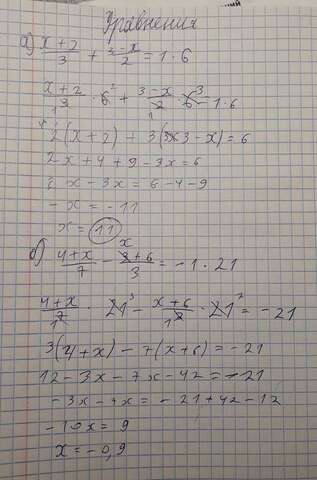 Уравнения
а) x+2/3 + 3-x/2 = 1·6
x+2/3 · 6² + 3-x/2 · 6³ = 1·6
2(x+2) + 3(3-x) = 6
2x+4+9-3x=6
2x-3x=6-4-9
-x=-11
x=11
б) 4+x/7 - x+6/3 = -1·21
4+x/7 · 21³ - x+6/ · 21⁷ = -21
3(4+x) - 7(x+6) = -21
12-3x-7x-42=-21
-3x-7x=-21+42-12
-10x=9
x=-0,9